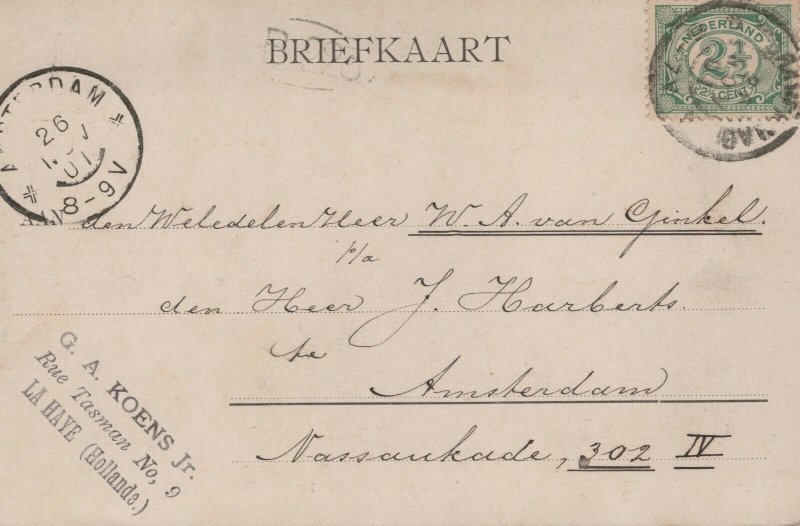 BRIEFKAART
NEDERLAND
2½
2½ CENT
AMSTERDAM
26
01
8-9V
AAN den Weledelen Heer W. A. van Ginkel.
p/a
den Heer J. Harberts.
te
Amsterdam
Nassaukade, 302 IV
G. A. KOENS Jr.
Rue Tasman No, 9
LA HAYE (Hollande.)